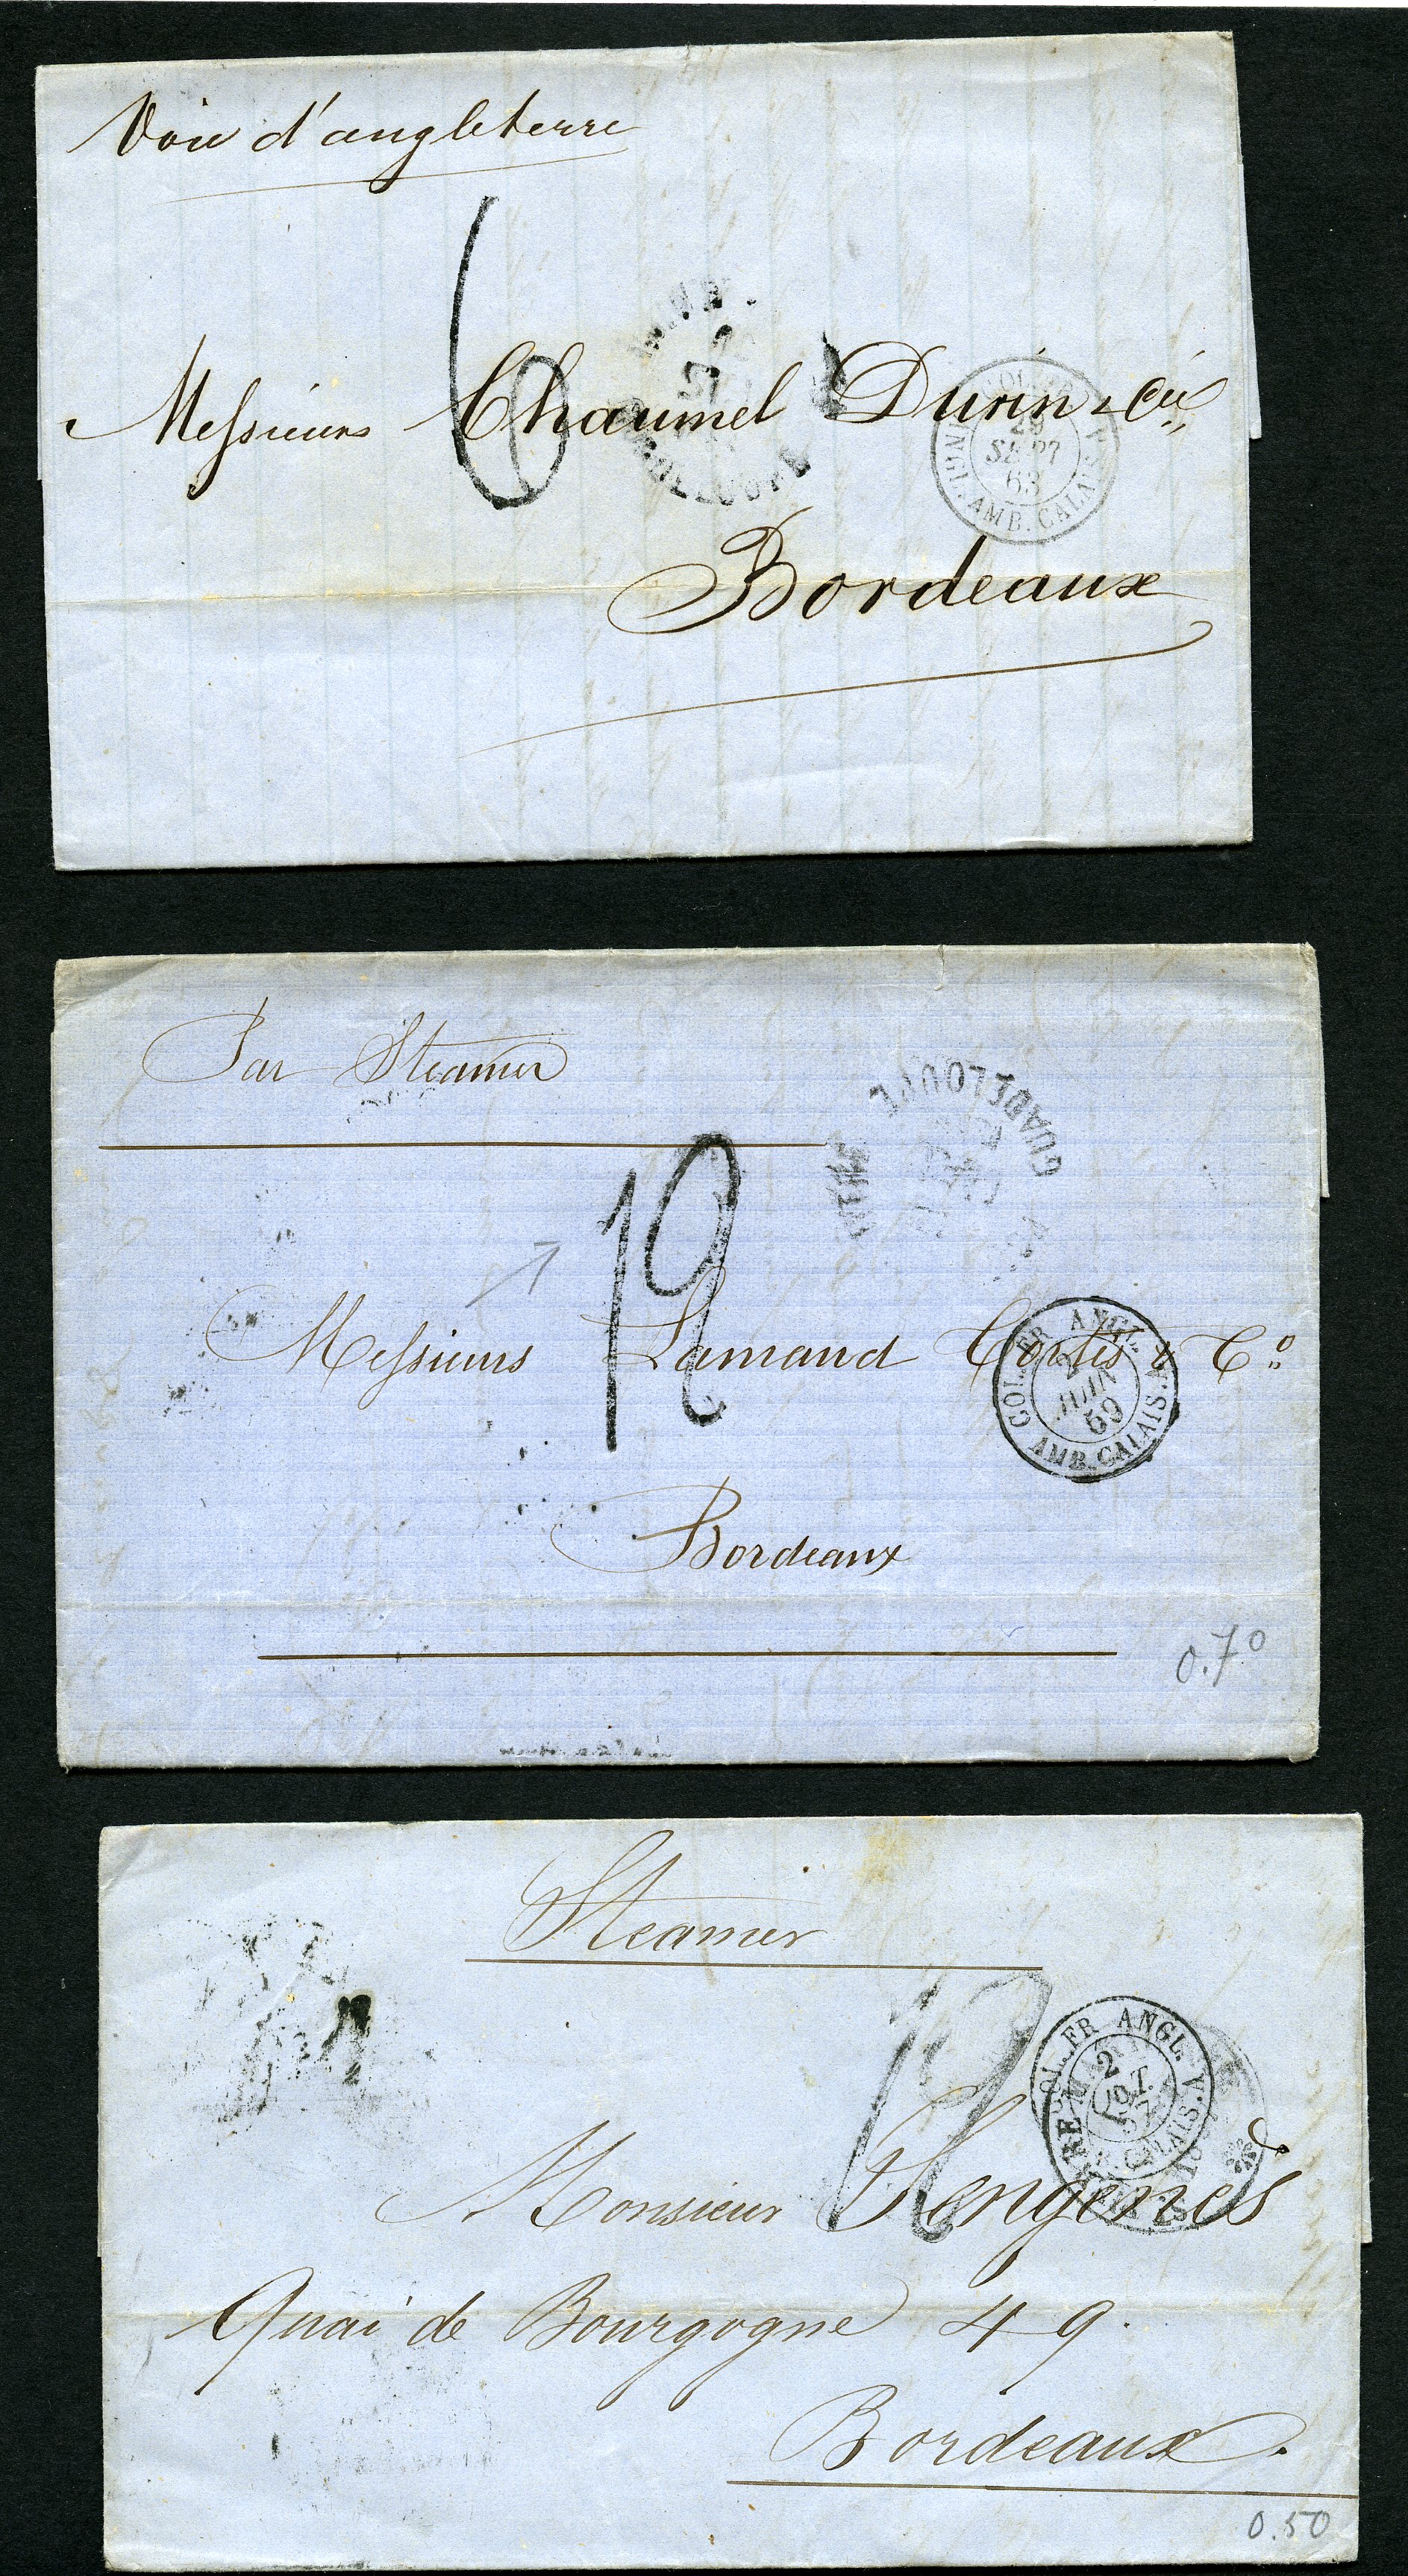 Voie d'angleterre
6
Messieurs Chaumel Durin & Cie
29
SEPT
63
ANGL. AMB. CALAIS A
Bordeaux
Par Steamer
GUADELOUPE
12
Messieurs Lamaud Cortis & Co
COL. FR ANGL.
2
JUIN
59
AMB. CALAIS. A
Bordeaux
0.70
Steamer
12
COL. FR ANGL. V.
2
OCT.
57
CALAIS. A
Monsieur
Quai de Bourgogne 49.
Bordeaux.
0.50